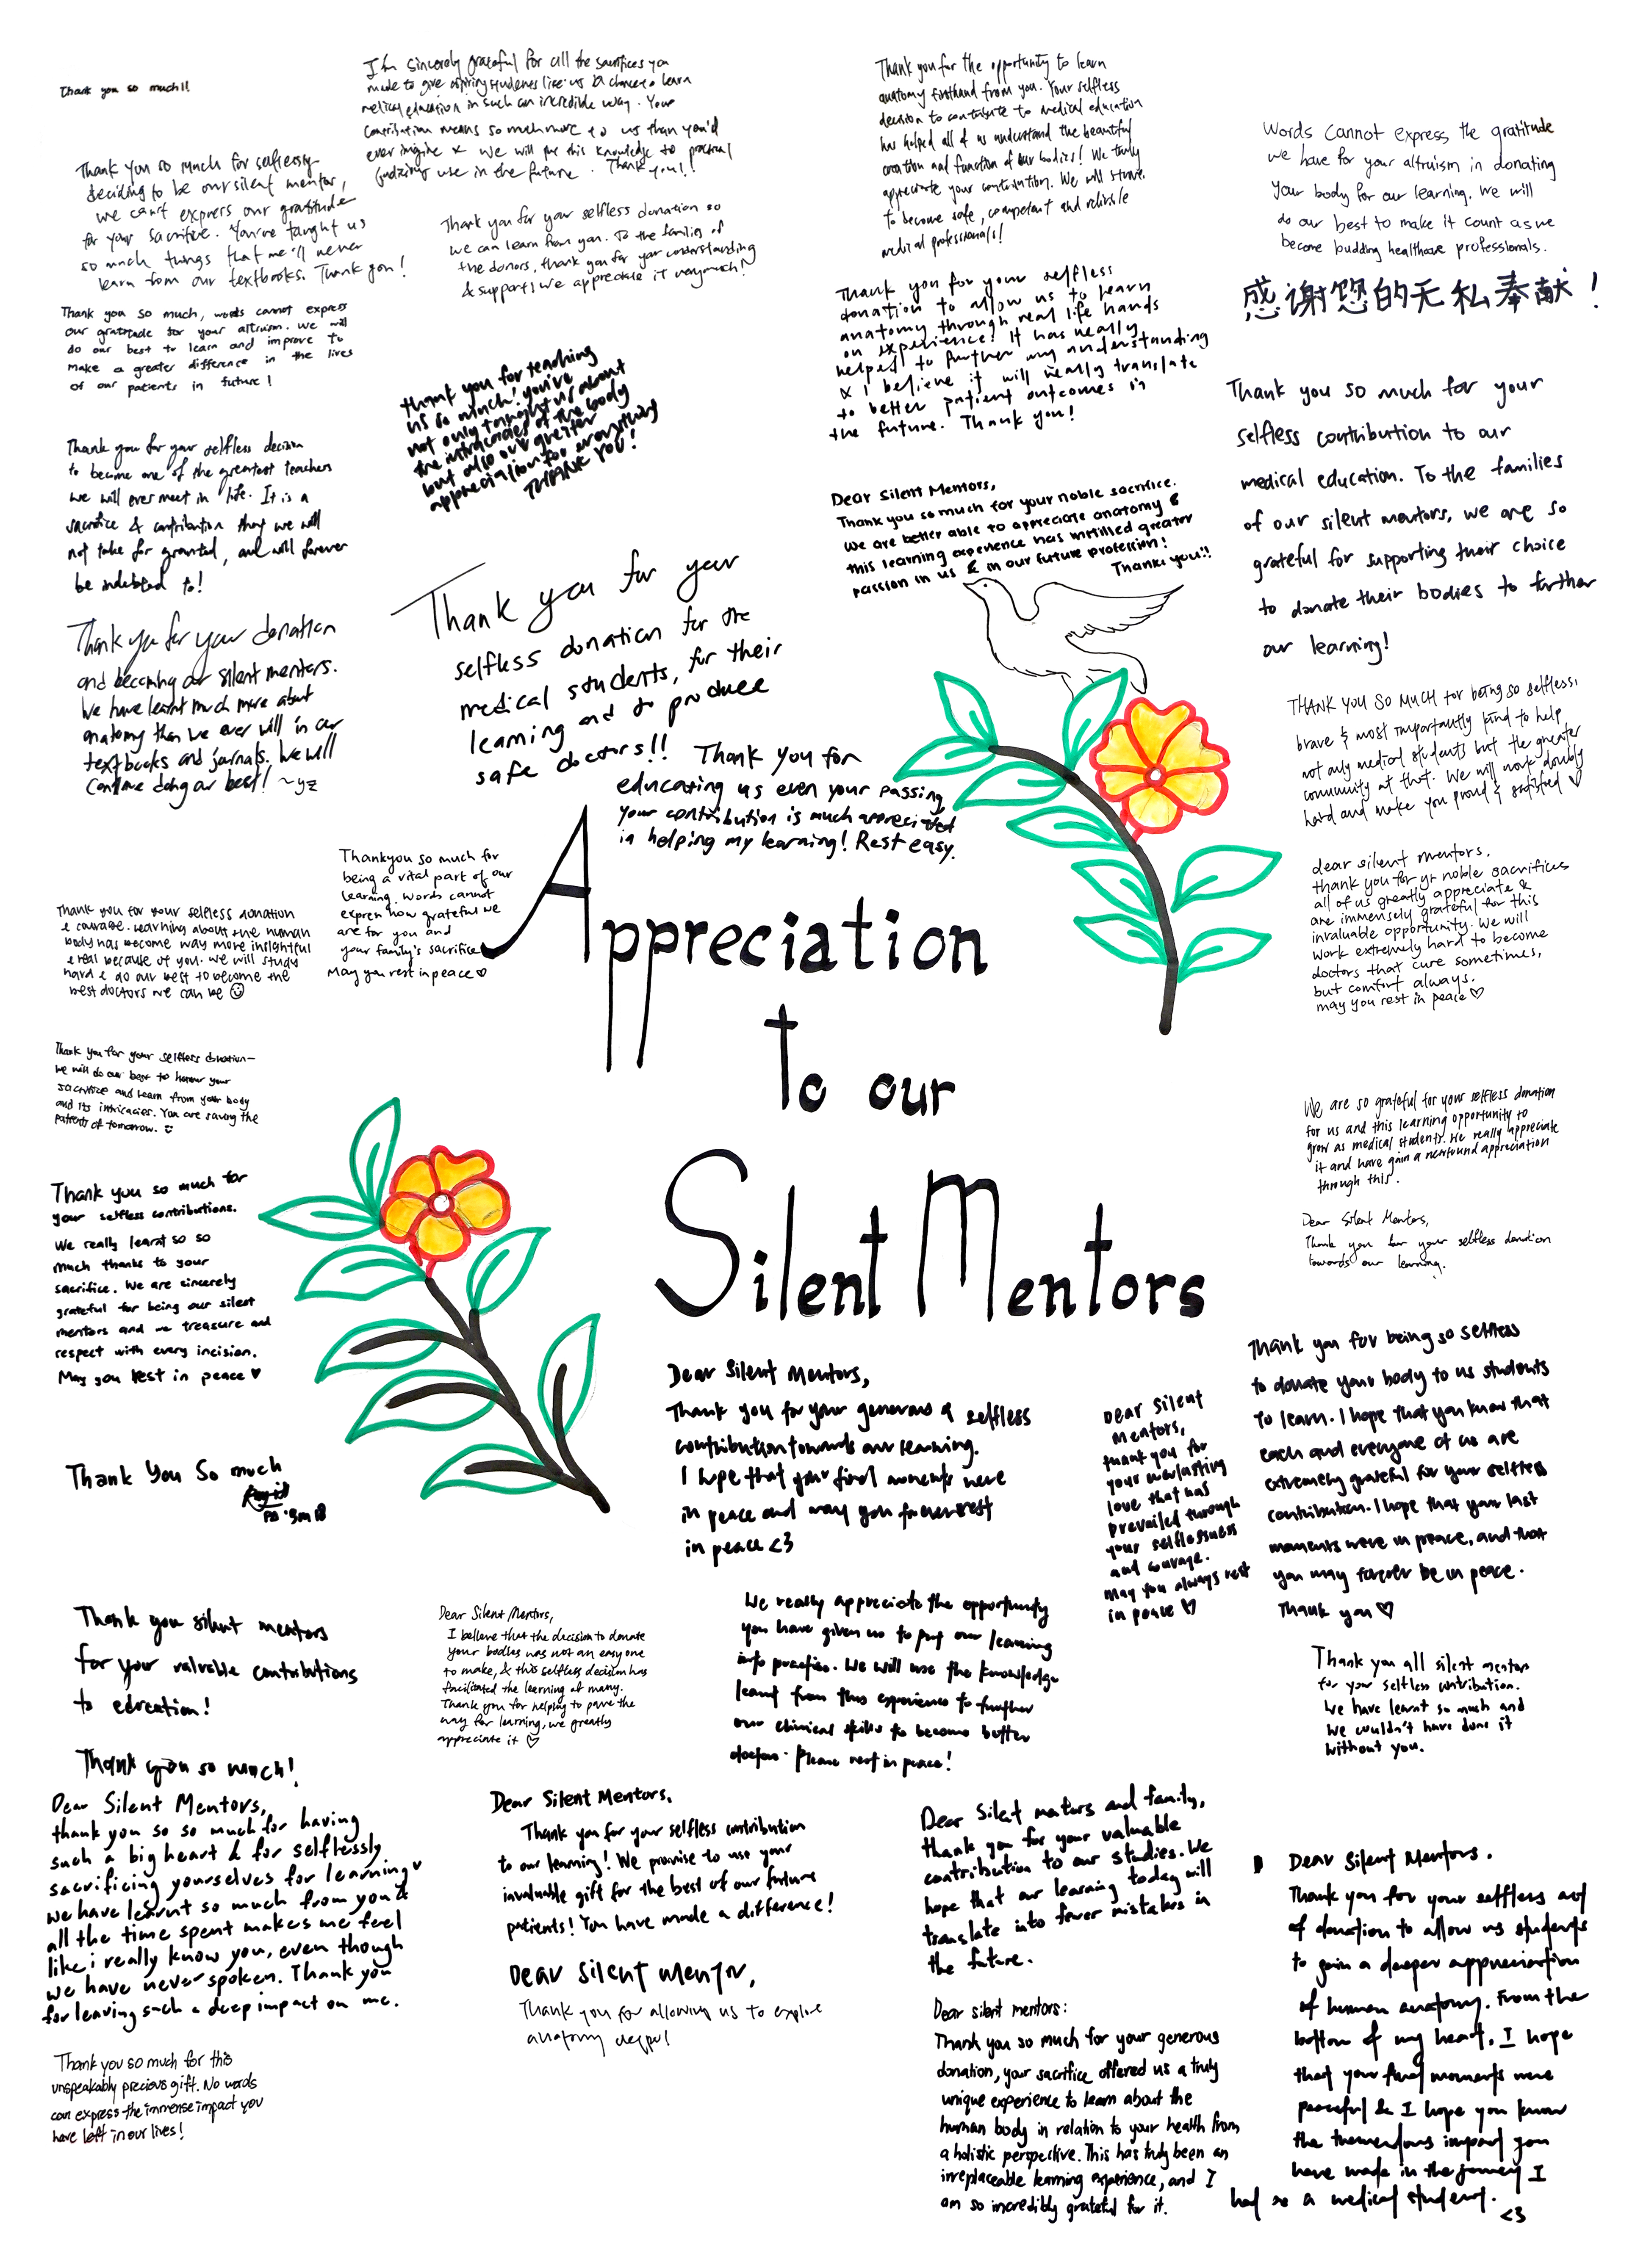 Thank you so much!!
I'm sincerely grateful for all the sacrifices you
made to give aspiring students like us a chance to learn
medical education in such an incredible way. Your
contribution means so much more to us than you'd
ever imagine & we will put this knowledge to practical
use in the future. Thank you!!
Thank you for the opportunity to learn
anatomy firsthand from you. Your selfless
decision to contribute to medical education
has helped all of us understand the beautiful
creation and function of our bodies! We truly
appreciate your contribution. We will strive
to become safe, competent and reliable
medical professionals!
Words cannot express the gratitude
we have for your altruism in donating
your body for our learning. We will
do our best to make it count as we
become budding healthcare professionals.
感谢您的无私奉献!
Thank you so much for selflessly
deciding to be our silent mentor,
we can't express our gratitude
for your sacrifice. You've taught us
so much things that we'll never
learn from our textbooks. Thank you!
Thank you for your selfless donation so
we can learn from you. To the families of
the donors, thank you for your understanding
& support! We appreciate it very much!
Thank you so much, words cannot express
our gratitude for your altruism. We will
do our best to learn and improve to
make a greater difference in the lives
of our patients in future!
thank you for teaching
us so much! you've
not only taught us about
the intricacies of the body
but also our greater
appreciation for everything
THANK YOU!
Thank you for your selfless
donation to allow us to learn
anatomy through real life hands
on experience! It has really
helped to further my understanding
& I believe it will really translate
to better patient outcomes in
the future. Thank you!
Thank you so much for your
selfless contribution to our
medical education. To the families
of our silent mentors, we are so
grateful for supporting their choice
to donate their bodies to further
our learning!
Thank you for your selfless decision
to become one of the greatest teachers
we will ever meet in life. It is a
sacrifice & contribution that we will
not take for granted, and will forever
be indebted to!
Dear Silent Mentors,
Thank you so much for your noble sacrifice.
We are better able to appreciate anatomy &
this learning experience has instilled greater
passion in us & in our future profession!
Thank you!!
Thank you for your donation
and becoming our silent mentors.
We have learnt much more about
anatomy than we ever will in our
textbooks and journals. We will
continue doing our best! ~yz
Thank you for your
selfless donation for the
medical students, for their
learning and to produce
safe doctors!!
Thank you for
educating us even your passing
your contribution is much appreciated
in helping my learning! Rest easy.
THANK YOU SO MUCH for being so selfless,
brave & most importantly kind to help
not only medical students but the greater
community at that. We will work doubly
hard and make you proud & satisfied ♡
Thankyou so much for
being a vital part of our
learning. Words cannot
express how grateful we
are for you and
your family's sacrifice
May you rest in peace ♡
dear silent mentors,
thank you for yr noble sacrifices
all of us greatly appreciate &
are immensely grateful for this
invaluable opportunity. We will
work extremely hard to become
doctors that cure sometimes,
but comfort always.
may you rest in peace ♡
Thank you for your selfless donation
& courage. Learning about the human
body has become way more insightful
& real because of you. We will study
hard & do our best to become the
best doctors we can be ☺
Appreciation
to our
Silent Mentors
Thank you for your selfless donation—
we will do our best to honour your
sacrifice and learn from your body
and its intricacies. You are saving the
patients of tomorrow.
We are so grateful for your selfless donation
for us and this learning opportunity to
grow as medical students. We really appreciate
it and have gain a newfound appreciation
through this.
Thank you so much for
your selfless contributions.
We really learnt so so
much thanks to your
sacrifice. We are sincerely
grateful for being our silent
mentors and we treasure and
respect with every incision.
May you rest in peace ♥
Dear Silent Mentors,
Thank you for your selfless donation
towards our learning.
Dear Silent Mentors,
Thank you for your generous & selfless
contribution towards our learning.
I hope that your final moments were
in peace and may you forever rest
in peace <3
Dear Silent
Mentors,
thank you for
your everlasting
love that has
prevailed through
your selflessness
and courage.
may you always rest
in peace ♡
Thank you for being so selfless
to donate your body to us students
to learn. I hope that you know that
each and everyone of us are
extremely grateful for your selfless
contribution. I hope that your last
moments were in peace, and that
you may forever be in peace.
Thank you ♡
Thank You So much
Thank you silent mentors
for your valuable contributions
to education!
Dear Silent Mentors,
I believe that the decision to donate
your bodies was not an easy one
to make, & this selfless decision has
facilitated the learning of many.
Thank you for helping to pave the
way for learning, we greatly
appreciate it ♡
We really appreciate the opportunity
you have given us to put our learning
into practice. We will use the knowledge
learnt from this experience to further
our clinical skills to become better
doctors. Please rest in peace!
Thank you all silent mentors
for your selfless contribution.
We have learnt so much and
we couldn't have done it
without you.
Thank you so much!
Dear Silent Mentors,
thank you so so much for having
such a big heart & for selflessly
sacrificing yourselves for learning
we have learnt so much from you &
all the time spent makes me feel
like i really know you, even though
we have never spoken. Thank you
for leaving such a deep impact on me.
Dear Silent Mentors,
Thank you for your selfless contribution
to our learning! We promise to use your
invaluable gift for the best of our future
patients! You have made a difference!
Dear Silent mentors and family,
thank you for your valuable
contribution to our studies. We
hope that our learning today will
translate into fewer mistakes in
the future.
Dear Silent Mentors.
Thank you for your selfless act
of donation to allow us students
to gain a deeper appreciation
of human anatomy. From the
bottom of my heart, I hope
that your final moments were
peaceful & I hope you know
the tremendous impact you
have made in the journey I
had as a medical student.
<3
Dear silent mentor,
Thank you for allowing us to explore
anatomy
Dear silent mentors:
Thank you so much for your generous
donation, your sacrifice offered us a truly
unique experience to learn about the
human body in relation to your health from
a holistic perspective. This has truly been an
irreplaceable learning experience, and I
am so incredibly grateful for it.
Thank you so much for this
unspeakably precious gift. No words
can express the immense impact you
have left in our lives!